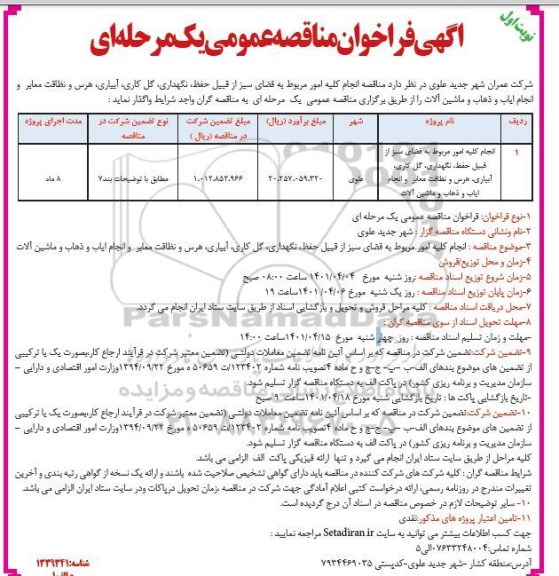 نوبت اول
آگهی فراخوان مناقصه عمومی یک مرحله‌ای
شرکت عمران شهر جدید علوی در نظر دارد مناقصه انجام کلیه امور مربوط به فضای سبز از قبیل حفظ، نگهداری، گل کاری، آبیاری، هرس و نظافت معابر و
انجام ایاب و ذهاب و ماشین آلات را از طریق برگزاری مناقصه عمومی یک مرحله ای به مناقصه گران واجد شرایط واگذار نماید :
ردیف نام پروژه شهر مبلغ برآورد (ریال) مبلغ تضمین شرکت در مناقصه (ریال) نوع تضمین شرکت در مناقصه مدت اجرای پروژه
۱ انجام کلیه امور مربوط به فضای سبز از
قبیل حفظ، نگهداری، گل کاری،
آبیاری، هرس و نظافت معابر و انجام
ایاب و ذهاب و ماشین آلات
علوی ۲۰،۲۵۷،۰۵۹،۳۲۰ ۱،۰۱۲،۸۵۳،۹۶۶ مطابق با توضیحات بند۷ ۸ ماه
۱-نوع فراخوان: فراخوان مناقصه عمومی یک مرحله ای
۲-نام ونشانی دستگاه مناقصه گزار : شهر جدید علوی
۳-موضوع مناقصه : انجام کلیه امور مربوط به فضای سبز از قبیل حفظ، نگهداری، گل کاری، آبیاری، هرس و نظافت معابر و انجام ایاب و ذهاب و ماشین آلات
۴-زمان و محل توزیع/فروش
۵-زمان شروع توزیع اسناد مناقصه :روز شنبه مورخ ۱۴۰۱/۰۴/۰۴ ساعت ۰۸:۰۰ صبح
۶-زمان پایان توزیع اسناد مناقصه : روز یک شنبه مورخ ۱۴۰۱/۰۴/۰۶ ساعت ۱۹
۷-محل دریافت اسناد مناقصه : کلیه مراحل فروش و تحویل و بازگشایی اسناد از طریق سایت ستاد ایران انجام می گردد.
۸-مهلت تحویل اسناد از سوی مناقصه گران :
-مهلت و زمان تسلیم اسناد مناقصه : روز چهار شنبه مورخ ۱۴۰۱/۰۴/۱۵ساعت ۱۴:۰۰
۹-تضمین شرکت:تضمین شرکت در مناقصه که بر اساس آئین نامه تضمین معاملات دولتی (تضمین معتبر شرکت در فرآیند ارجاع کار،بصورت یک یا ترکیبی
از تضمین های موضوع بندهای الف-ب -پ- ج-چ و ح ماده ۴تصویب نامه شماره ۱۲۳۴۰۲/ت ۵۰۶۵۹ ه مورخ ۱۳۹۴/۰۹/۲۲وزارت امور اقتصادی و دارایی –
سازمان مدیریت و برنامه ریزی کشور) در پاکت الف به دستگاه مناقصه گزار تسلیم شود.
-تاریخ بازگشایی پاکت ها : تاریخ بازگشایی شنبه مورخ ۱۴۰۱/۰۴/۱۸ ساعت ۹ صبح
۱۰-تضمین شرکت:تضمین شرکت در مناقصه که بر اساس آئین نامه تضمین معاملات دولتی (تضمین معتبر شرکت در فرآیند ارجاع کار،بصورت یک یا ترکیبی
از تضمین های موضوع بندهای الف-ب -پ- ج-چ و ح ماده ۴تصویب نامه شماره ۱۲۳۴۰۲/ت ۵۰۶۵۹ ه مورخ ۱۳۹۴/۰۹/۲۲ وزارت امور اقتصادی و دارایی –
سازمان مدیریت و برنامه ریزی کشور) در پاکت الف به دستگاه مناقصه گزار تسلیم شود.
کلیه مراحل از طریق سایت ستاد ایران انجام می گیرد و تنها ارائه فیزیکی پاکت الف الزامی می باشد.
شرایط مناقصه گران : کلیه شرکت های شرکت کننده در مناقصه باید دارای گواهی تشخیص صلاحیت شده باشند و ارائه یک نسخه از گواهی رتبه بندی و آخرین
تغییرات مندرج در روزنامه رسمی، ارائه درخواست کتبی اعلام آمادگی جهت شرکت در مناقصه ،زمان تحویل درپاکات ودر سایت ستاد ایران الزامی می باشد.
-سایر توضیحات لازم در خصوص مناقصه در اسناد آن درج گردیده است.
۱۱-تامین اعتبار پروژه های مذکور:نقدی
جهت کسب اطلاعات بیشتر می توانید به سایت Setadiran.ir مراجعه نمایید :
شماره تماس:۰۷۶۳۳۲۴۸۰۰۴الی۵
آدرس:منطقه کشار -شهر جدید علوی-کدپستی ۷۹۳۴۴۶۹۰۳۵
شناسه:۱۳۳۹۳۴۱
ParsNamadData